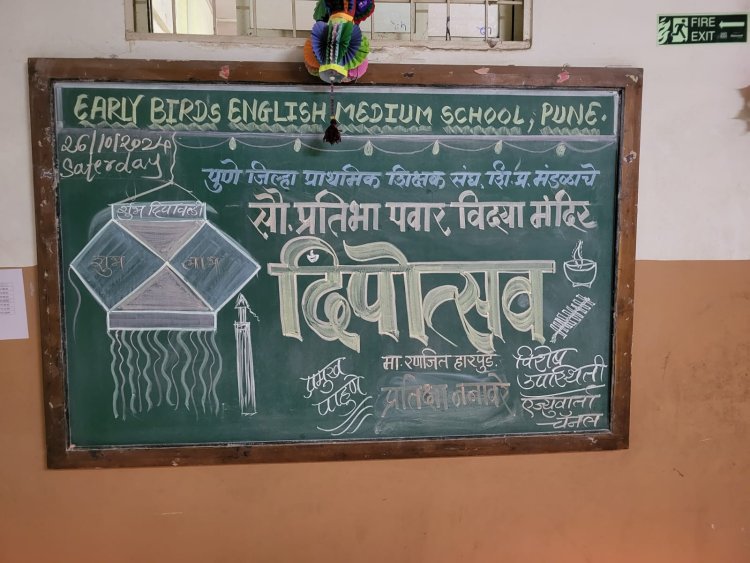 FIRE
EXIT
EARLY BIRDS ENGLISH MEDIUM SCHOOL, PUNE.
26/10/2024
Saterday
पुणे जिल्हा प्राथमिक शिक्षक संघ. शि. प्र. मंडळाचे
सौ. प्रतिभा पवार विद्या मंदिर
शुभ दिपावली
शुभ लाभ
दिपोत्सव
प्रमुख
पाहुणे
मा. रणजित हारपुडे.
प्रतिक्षा ननावरे
विशेष
उपस्थिती
एज्युवार्ता
चॅनल